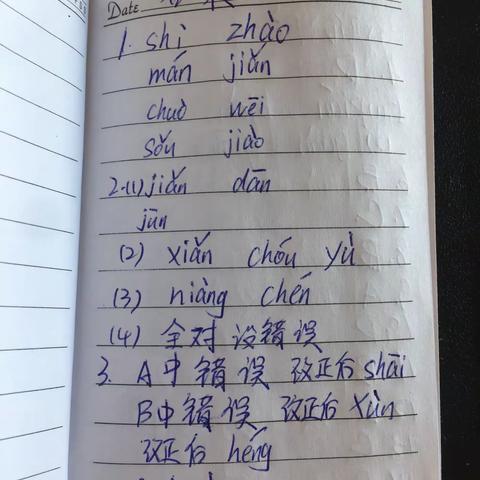 Date
1. shì zhào
mán jiǎn
chuò wēi
sǒu jiào
2.(1) jiǎn dān
jūn
(2) xiǎn chóu yù
(3) niàng chén
(4)全对 没错误
3. A中错误 改正后 shāi
B中错误 改正后 xùn
改正后 héng